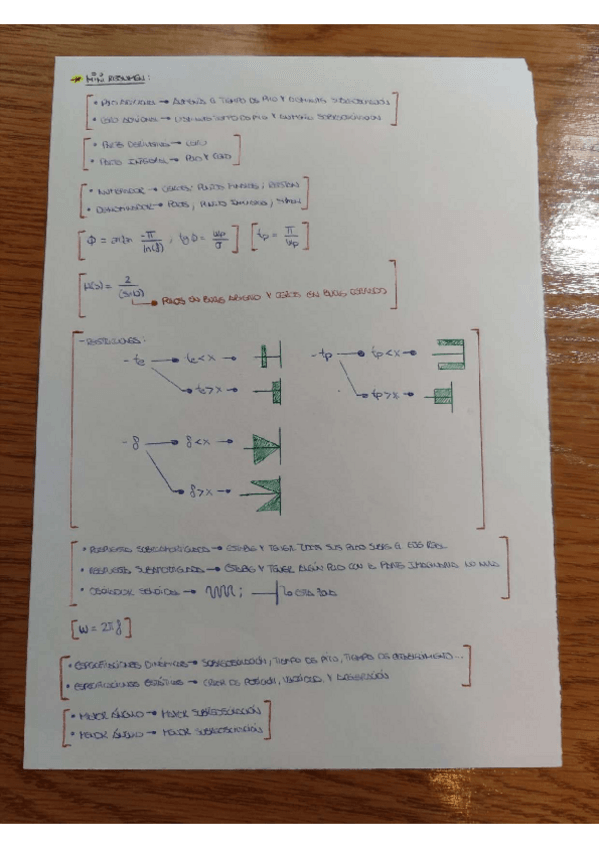 MINI RESUMEN:
• POLO ADICIONAL → AUMENTA EL TIEMPO DE PICO Y DISMINUYE SOBREOSCILACIÓN
• CERO ADICIONAL → DISMINUYE TIEMPO DE PICO Y AUMENTA SOBREOSCILACIÓN
• PARTE DERIVATIVA → CERO
• PARTE INTEGRAL → POLO Y CERO
• NUMERADOR → CEROS; PUNTO
• DENOMINADOR → POLOS, PUNTO
= -π / ln(δ) ; tg θ = ωp / σ tp = π / ωp
= 2 / → POLOS EN BUCLE ABIERTO Y CEROS EN BUCLE CERRADO
- RESTRICCIONES:
- te → te < x → - tp → tp < x →
→ te > x → → tp > x →
- δ → δ < x →
→ δ > x →
• RESPUESTA SOBREAMORTIGUADA → ESTABLE Y TENER TODOS SUS POLOS SOBRE EL EJE REAL
• RESPUESTA SUBAMORTIGUADA → ESTABLE Y TENER ALGÚN POLO CON LA PARTE IMAGINARIA NO NULA
• OSCILADOR →
[ω = 2πf]
• ESPECIFICACIONES DINÁMICAS → SOBREOSCILACIÓN, TIEMPO DE PICO, TIEMPO DE ESTABLECIMIENTO...
• ESPECIFICACIONES ESTÁTICAS → ERROR DE POSICIÓN, VELOCIDAD Y ACELERACIÓN
• MAYOR ÁNGULO → MAYOR SOBREOSCILACIÓN
• MENOR ÁNGULO → MENOR SOBREOSCILACIÓN